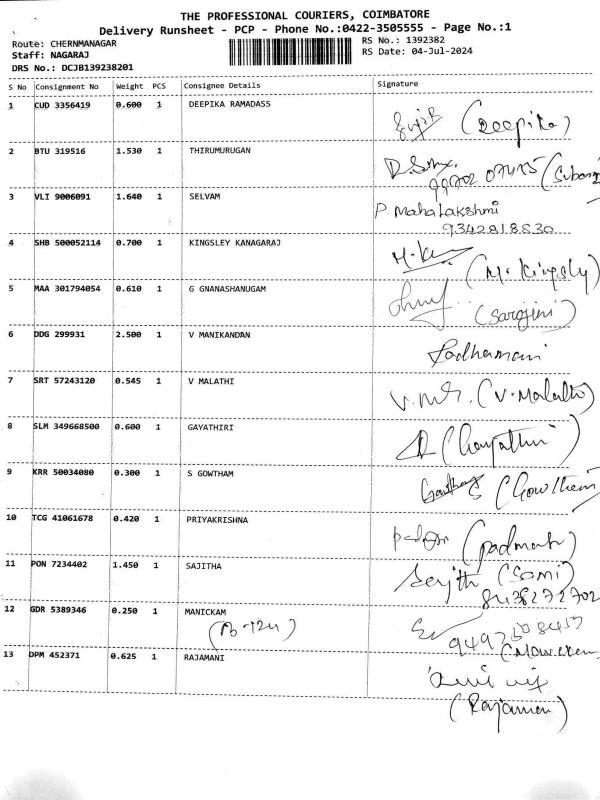 THE PROFESSIONAL COURIERS, COIMBATORE
Delivery Runsheet - PCP - Phone No.:0422-3505555 - Page No.:1
Route: CHERNMANAGAR RS No.: 1392382
Staff: NAGARAJ RS Date: 04-Jul-2024
DRS No.: DCJB139238201
S No Consignment No Weight PCS Consignee Details Signature
1 CUD 3356419 0.600 1 DEEPIKA RAMADASS
(Deepika)
2 BTU 319516 1.530 1 THIRUMURUGAN
3 VLI 9006091 1.640 1 SELVAM
P Mahalakshmi
9342818830
4 SHB 500052114 0.700 1 KINGSLEY KANAGARAJ
(M. Kingsly)
5 MAA 301794054 0.610 1 G GNANASHANUGAM
(Sarojini)
6 DDG 299931 2.500 1 V MANIKANDAN
Padhamani
7 SRT 57243120 0.545 1 V MALATHI
(V. Malathi)
8 SLM 349668500 0.600 1 GAYATHIRI
(Gayathiri)
9 KRR 50034080 0.300 1 S GOWTHAM
(Gowtham)
10 TCG 41061678 0.420 1 PRIYAKRISHNA
11 PON 7234402 1.450 1 SAJITHA
(Sami)
8438272702
12 GDR 5389346 0.250 1 MANICKAM
13 DPM 452371 0.625 1 RAJAMANI